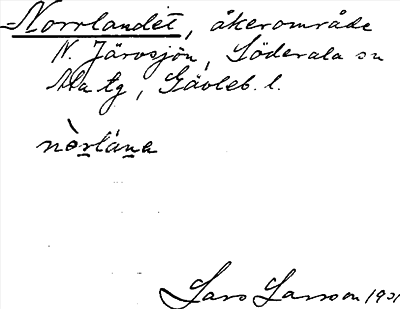 Norrlandet, åkerområde
N. Järvsjön, Söderala sn
Ala tg, Gävleb. l.
nòrlána
Lars Larsson 1931